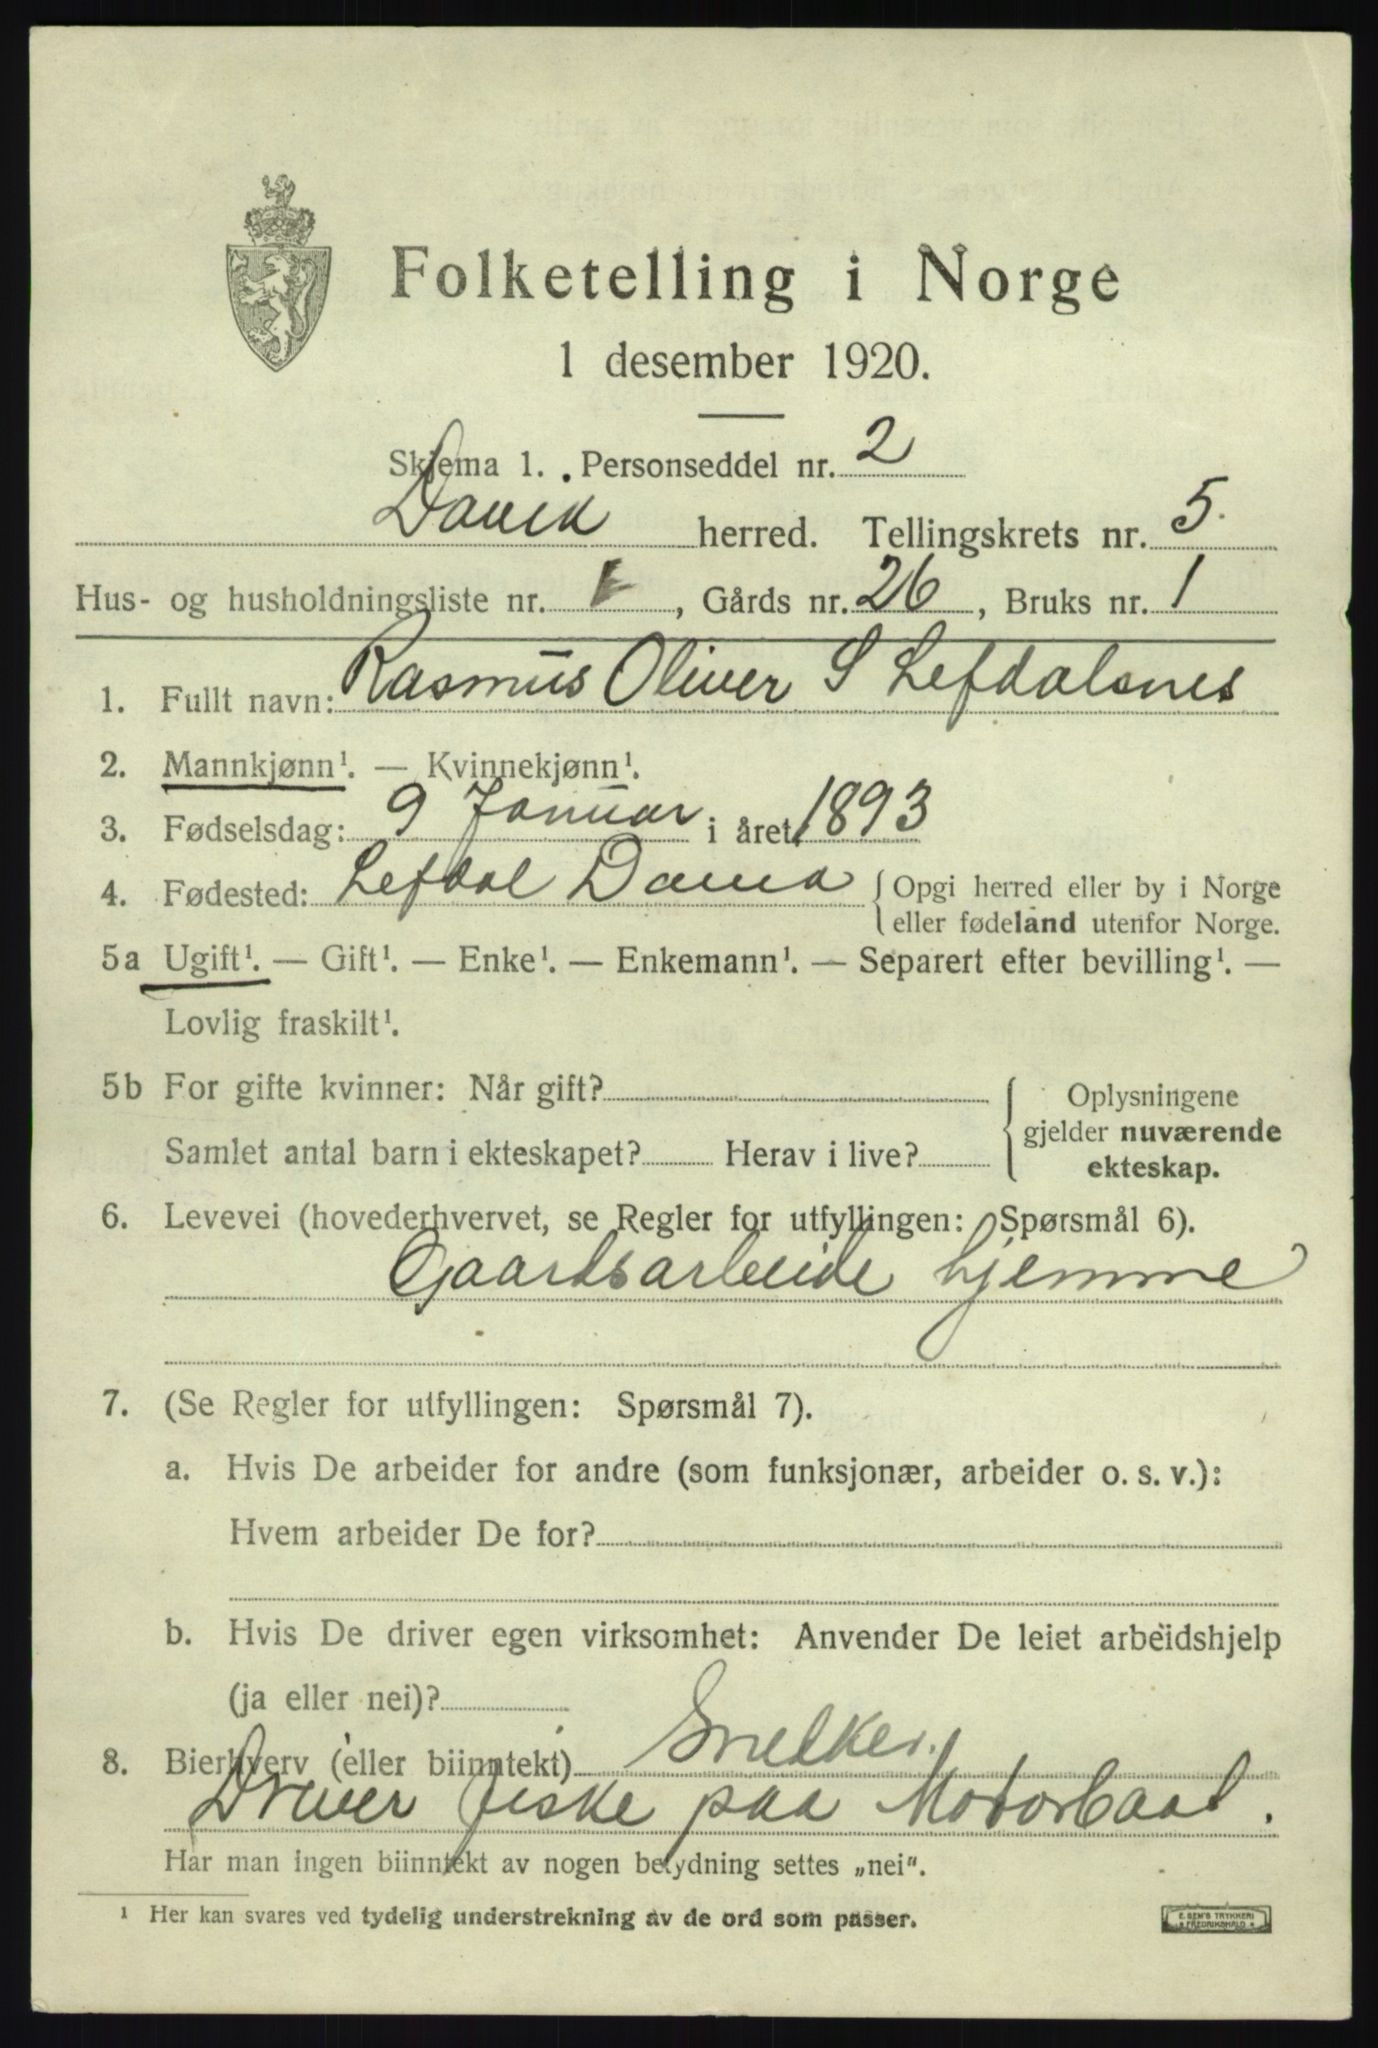 Folketelling i Norge
1 desember 1920.
Skjema 1. Personseddel nr. 2
Davik herred. Tellingskrets nr. 5.
Hus- og husholdningsliste nr. 1, Gårds nr. 26, Bruks nr. 1
1. Fullt navn: Rasmus Oliver S Lefdalsnes
2. Mannkjønn¹. — Kvinnekjønn¹.
3. Fødselsdag: 9 Januar i året 1893
4. Fødested: Lefdal Davik { Opgi herred eller by i Norge
eller fødeland utenfor Norge.
5a Ugift¹. — Gift¹. — Enke¹. — Enkemann¹. — Separert efter bevilling¹. —
Lovlig fraskilt¹.
5b For gifte kvinner: Når gift? { Oplysningene
gjelder nuværende
Samlet antal barn i ekteskapet? Herav i live? ekteskap.
6. Levevei (hovederhvervet, se Regler for utfyllingen: Spørsmål 6).
Gaardsarbeide hjemme
7. (Se Regler for utfyllingen: Spørsmål 7).
a. Hvis De arbeider for andre (som funksjonær, arbeider o. s. v.):
Hvem arbeider De for?
b. Hvis De driver egen virksomhet: Anvender De leiet arbeidshjelp
(ja eller nei)?
8. Bierhverv (eller biinntekt) Snedker.
Driver fiske paa Motorbaat.
Har man ingen biinntekt av nogen betydning settes „nei".
¹ Her kan svares ved tydelig understrekning av de ord som passer.
E. SEM'S TRYKKERI
FREDRIKSHALD